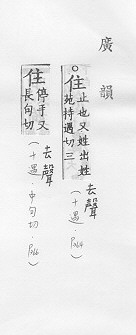 廣韻
○住
止也又姓出姓
苑持遇切三
去聲
(十遇.
住
停手又
長句切
去聲
(十遇.中句切.